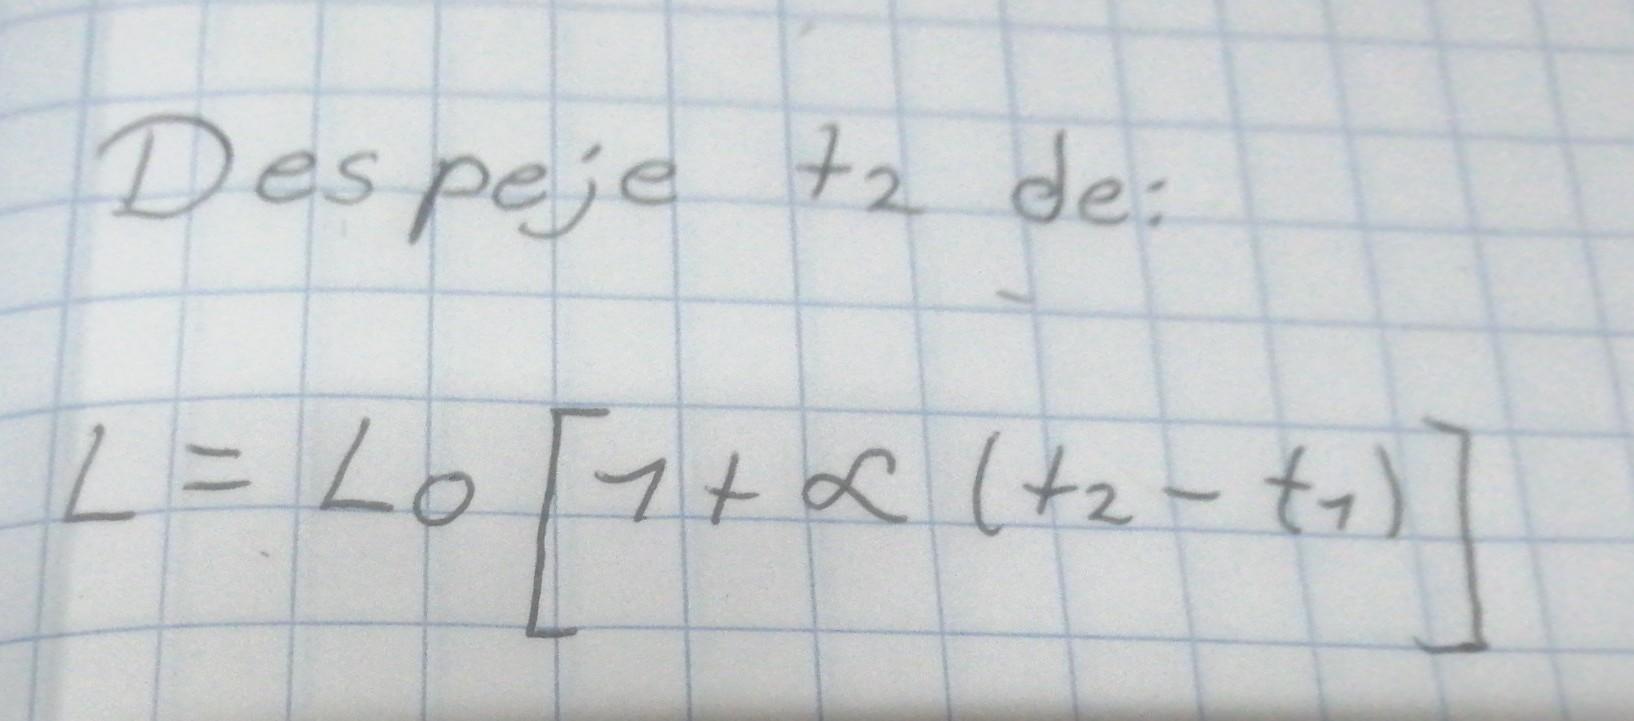 Despeje t₂ de:
L = L₀ [1 + α (t₂ - t₁)]